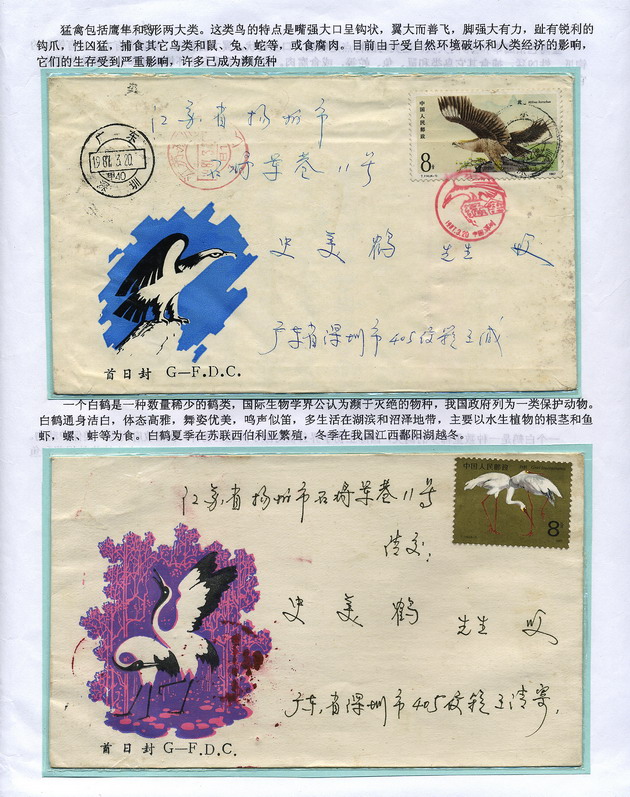 猛禽包括鹰隼和鸮形两大类。这类鸟的特点是嘴强大口呈钩状，翼大而善飞，脚强大有力，趾有锐利的
钩爪，性凶猛，捕食其它鸟类和鼠、兔、蛇等，或食腐肉。目前由于受自然环境破坏和人类经济的影响，
它们的生存受到严重影响，许多已成为濒危种
江苏省扬州市
中国人民邮政
8
石将军巷11号
广东
1987.3.20
深圳
1987.3.20
史美鹤 先生 收
广东省深圳市405
首日封 G-F.D.C.
一个白鹤是一种数量稀少的鹤类，国际生物学界公认为濒于灭绝的物种，我国政府列为一类保护动物。
白鹤通身洁白，体态高雅，舞姿优美，鸣声似笛，多生活在湖滨和沼泽地带，主要以水生植物的根茎和鱼
虾，螺、蚌等为食。白鹤夏季在苏联西伯利亚繁殖，冬季在我国江西鄱阳湖越冬。
中国人民邮政
8
江苏省扬州市石将军巷11号
请交：
史美鹤 先生 收
广东省深圳市405
首日封 G-F.D.C.